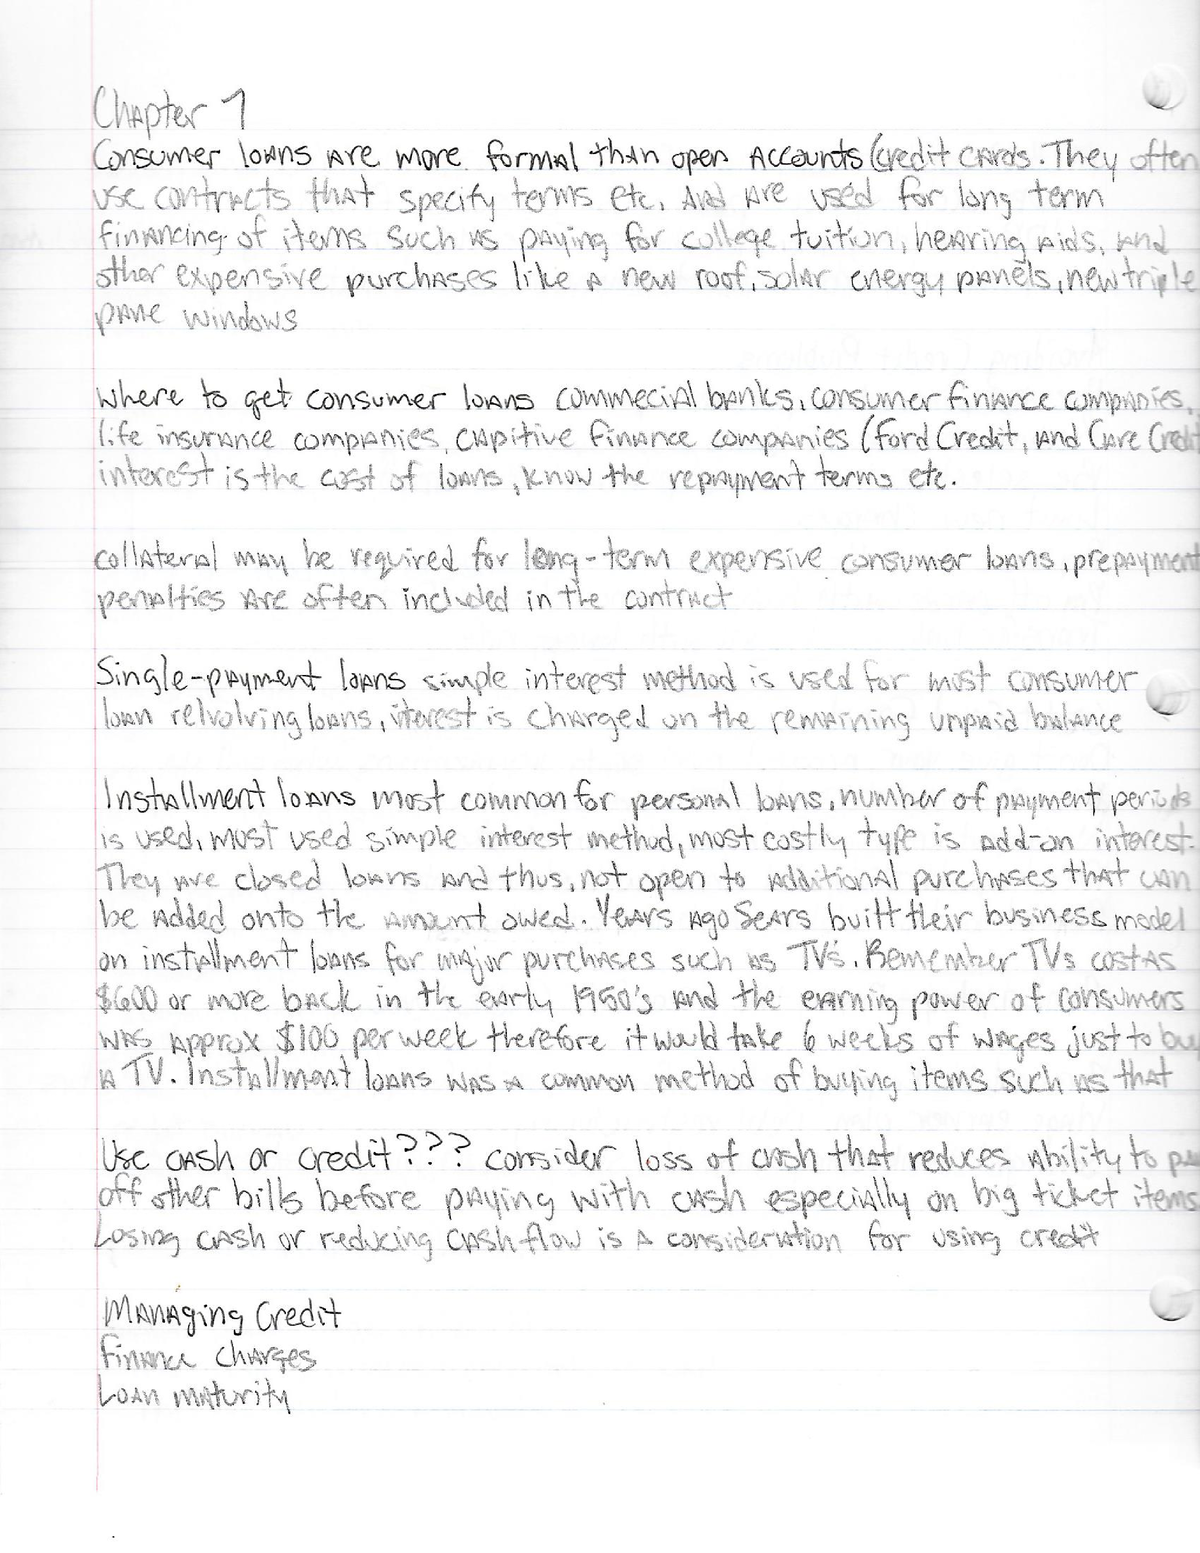 Chapter 7
Consumer loans are more formal than open accounts (credit cards. They often
use contracts that specify terms etc. And are used for long term
financing of items such as paying for college tuition, hearing aids, and
other expensive purchases like a new roof, solar energy panels, new triple
pane windows
where to get consumer loans commecial banks, consumer finance companies,
life insurance companies, capitive finance companies (Ford Credit, and Care Credit
interest is the cost of loans, know the repayment terms etc.
collateral may be required for long-term expensive consumer loans, prepayment
penalties are often included in the contract
Single-payment loans simple interest method is used for most consumer
loan relvolving loans, iterest is charged on the remaining unpaid balance
Installment loans most common for personal loans, number of payment periods
is used, most used simple interest method, most costly type is add-on interest.
They are closed loans and thus, not open to additional purchases that can
be added onto the amount owed. Years ago Sears built their business model
on installment loans for major purchases such as TV's. Remember TVs cost as
$600 or more back in the early 1950's and the earning power of consumers
was approx $100 per week therefore it would take 6 weeks of wages just to bu
a TV. Installment loans was a common method of buying items such as that
Use cash or credit??? consider loss of cash that reduces ability to pa
off other bills before paying with cash especially on big ticket items
Losing cash or reducing cash flow is a consideration for using credit
Managing Credit
finance charges
Loan maturity